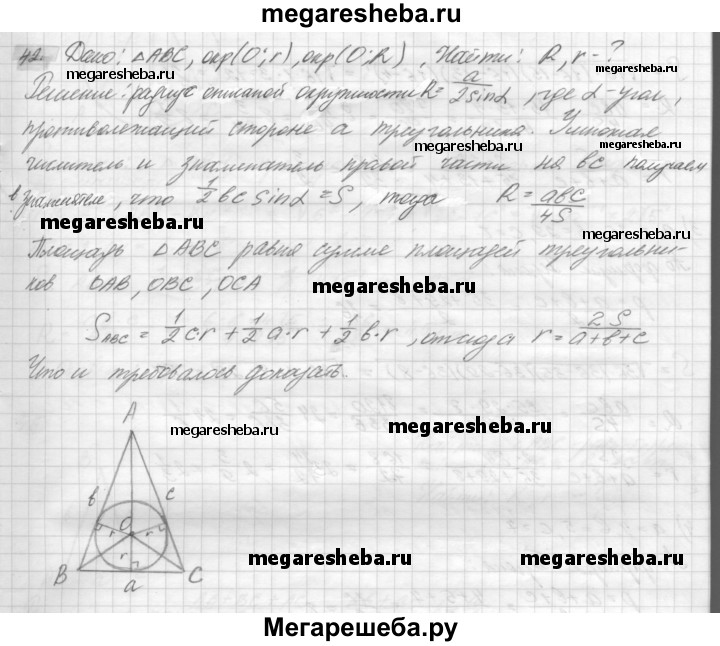 megaresheba.ru
42. Дано: △ABC, окр(O;r), окр(O;R), Найти: R, r-?
megaresheba.ru
megaresheba.ru
Решение: радиус описаной окружности R = a/2sinα, где α-угол,
megaresheba.ru
противолежащий стороне a треугольника. Умножая
числитель и знаменатель правой части на bc получаем
в знаменателе, что 1/2 bc sinα = S, тогда R = abc/4S
megaresheba.ru
megaresheba.ru
Площадь △ABC равна сумме площадей треугольни-
ков OAB, OBC, OCA
megaresheba.ru
S ABC = 1/2 c·r + 1/2 a·r + 1/2 b·r, отсюда r = 2S/a+b+c
Что и требовалось доказать.
megaresheba.ru
A
megaresheba.ru
megaresheba.ru
b c
O
r r
r
B C
a
megaresheba.ru
megaresheba.ru
Мегарешеба.ру